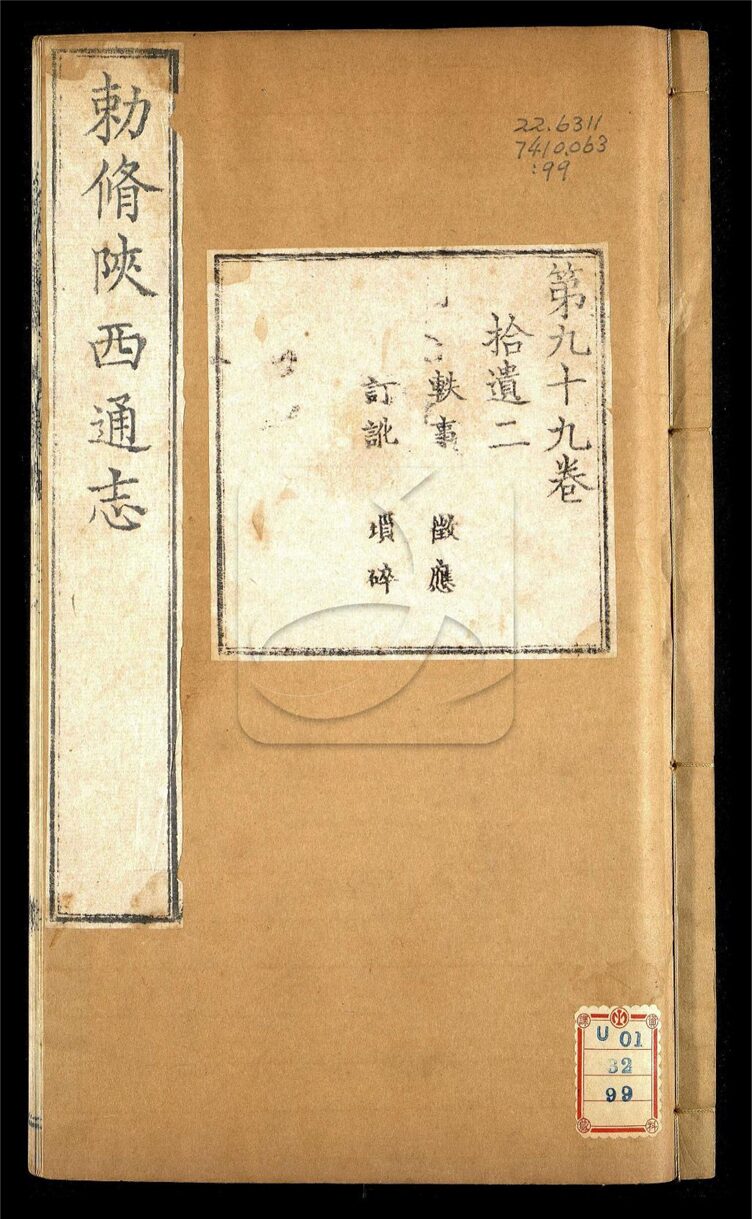 勅脩陝西通志
22.6311
7410.063
:99
第九十九卷
拾遺二
軼事 徵應
訂訛 瑣碎
U 01
32
99